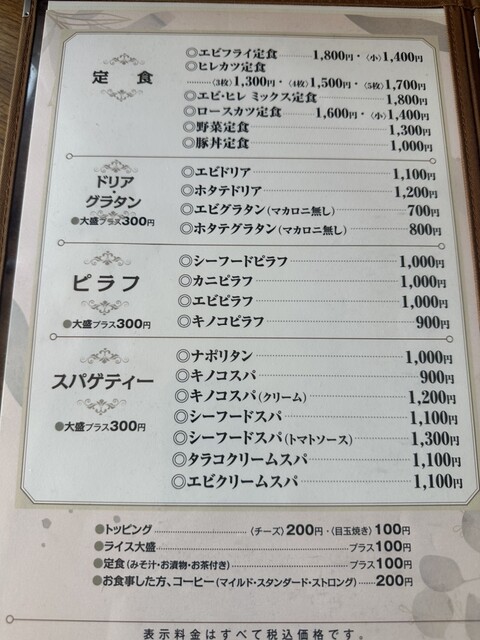 定食
◎エビフライ定食 1,800円・〈小〉1,400円
◎ヒレカツ定食
〈3枚〉1,300円・〈4枚〉1,500円・〈5枚〉1,700円
◎エビ・ヒレ ミックス定食 1,800円
◎ロースカツ定食 1,600円・〈小〉1,400円
◎野菜定食 1,300円
◎豚丼定食 1,000円
ドリア・グラタン
●大盛プラス300円
◎エビドリア 1,100円
◎ホタテドリア 1,200円
◎エビグラタン(マカロニ無し) 700円
◎ホタテグラタン(マカロニ無し) 800円
ピラフ
●大盛プラス300円
◎シーフードピラフ 1,000円
◎カニピラフ 1,000円
◎エビピラフ 1,000円
◎キノコピラフ 900円
スパゲティー
●大盛プラス300円
◎ナポリタン 1,000円
◎キノコスパ 900円
◎キノコスパ(クリーム) 1,200円
◎シーフードスパ 1,100円
◎シーフードスパ(トマトソース) 1,300円
◎タラコクリームスパ 1,100円
◎エビクリームスパ 1,100円
●トッピング 〈チーズ〉200円・〈目玉焼き〉100円
●ライス大盛 プラス100円
●定食(みそ汁・お漬物・お茶付き) プラス100円
●お食事した方、コーヒー(マイルド・スタンダード・ストロング) 200円
表示料金はすべて税込価格です。